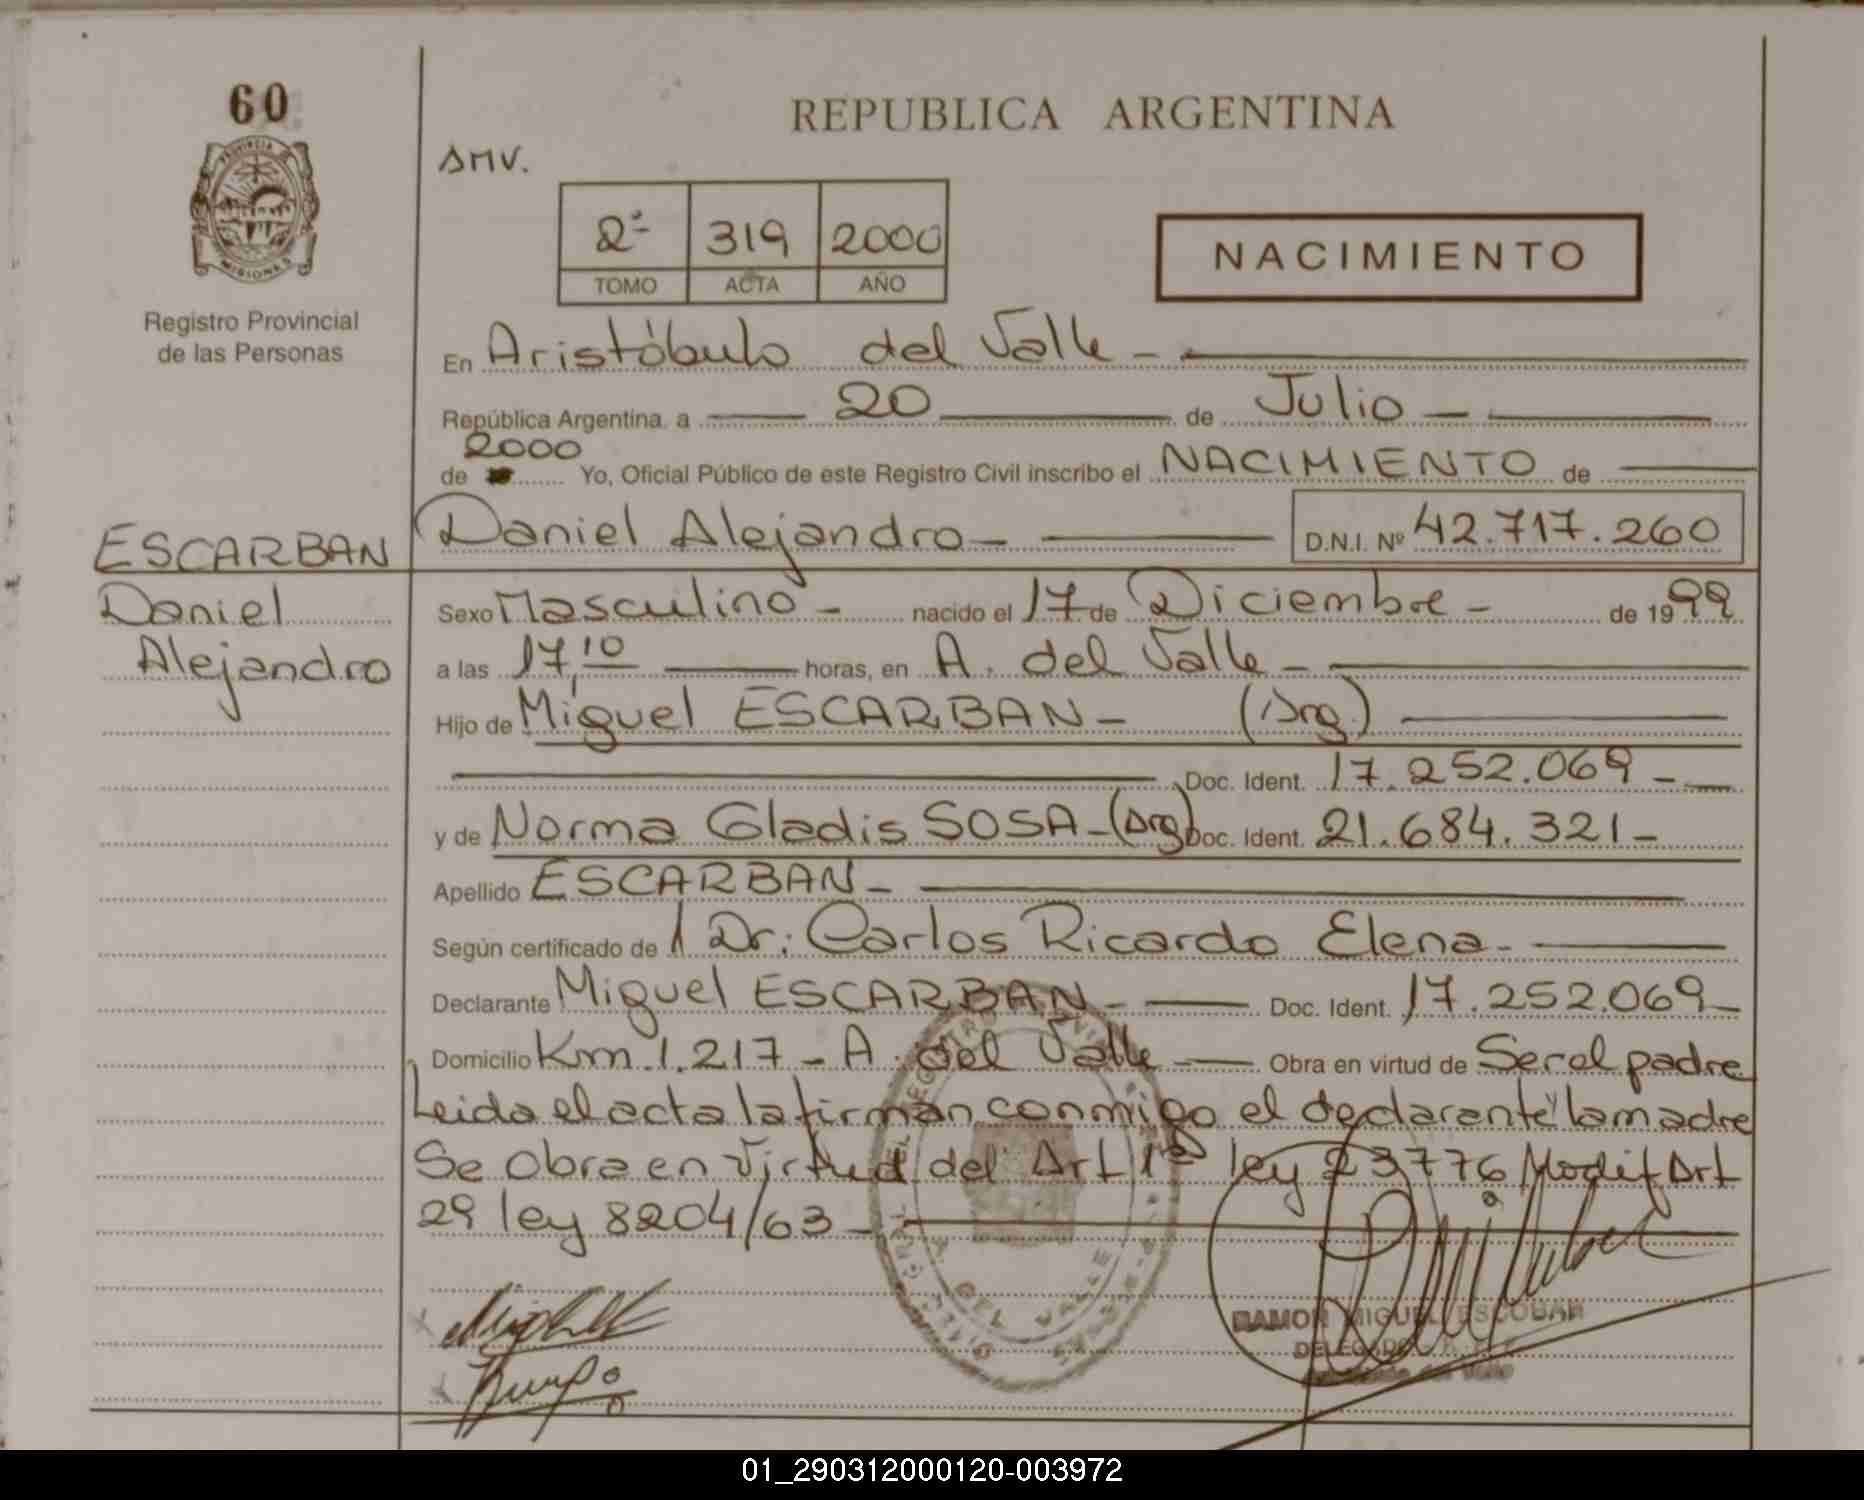 60
REPUBLICA ARGENTINA
PROVINCIA DE
MISIONES
Registro Provincial
de las Personas
AMV.
2ª 319 2000
TOMO ACTA AÑO
NACIMIENTO
En Aristóbulo del Valle -
República Argentina, a 20 de Julio -
de 2000 Yo, Oficial Público de este Registro Civil inscribo el NACIMIENTO de
ESCARBAN Daniel Alejandro - D.N.I. Nº 42.717.260
Daniel Sexo Masculino - nacido el 17 de Diciembre - de 1999
Alejandro a las 17,10 horas, en A. del Valle -
Hijo de Miguel ESCARBAN - (Arg.)
Doc. Ident. 17.252.069 -
y de Norma Gladis SOSA - (Arg) Doc. Ident. 21.684.321 -
Apellido ESCARBAN -
Según certificado de Dr: Carlos Ricardo Elena -
Declarante Miguel ESCARBAN - Doc. Ident. 17.252.069 -
Domicilio Km. 1.217 - A. del Valle - Obra en virtud de Ser el padre
Leida el acta la firman conmigo el declarante y la madre
Se obra en virtud del Art 1º ley 23776 Modif Art
29 ley 8204/63 -
DEL VALLE
RAMON MIGUEL ESCOBAR
DELEGADO
01_290312000120-003972